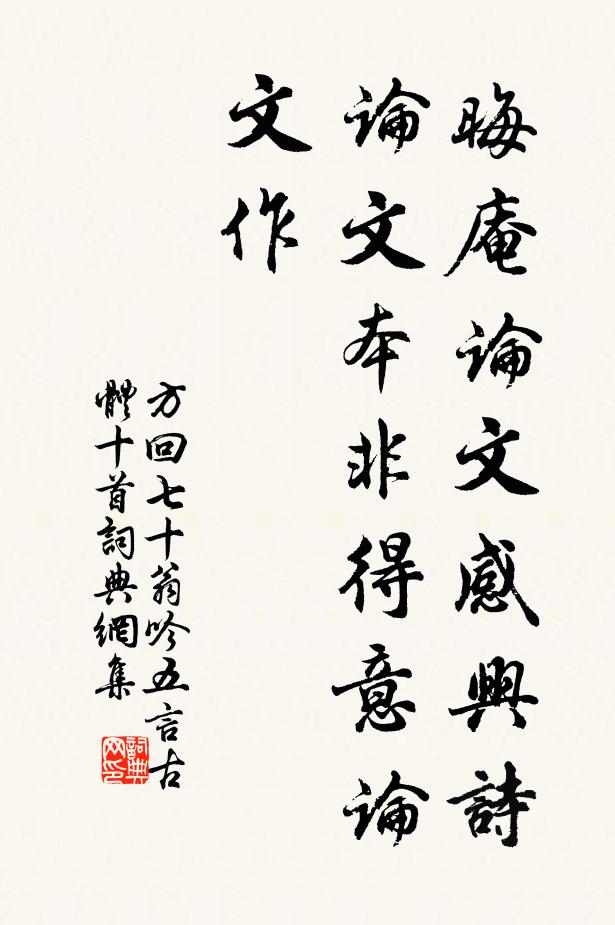 晦庵論文感興詩
論文本非得意論
文作
方回七十翁吟五言古
體十首詞典網集
詞典網印